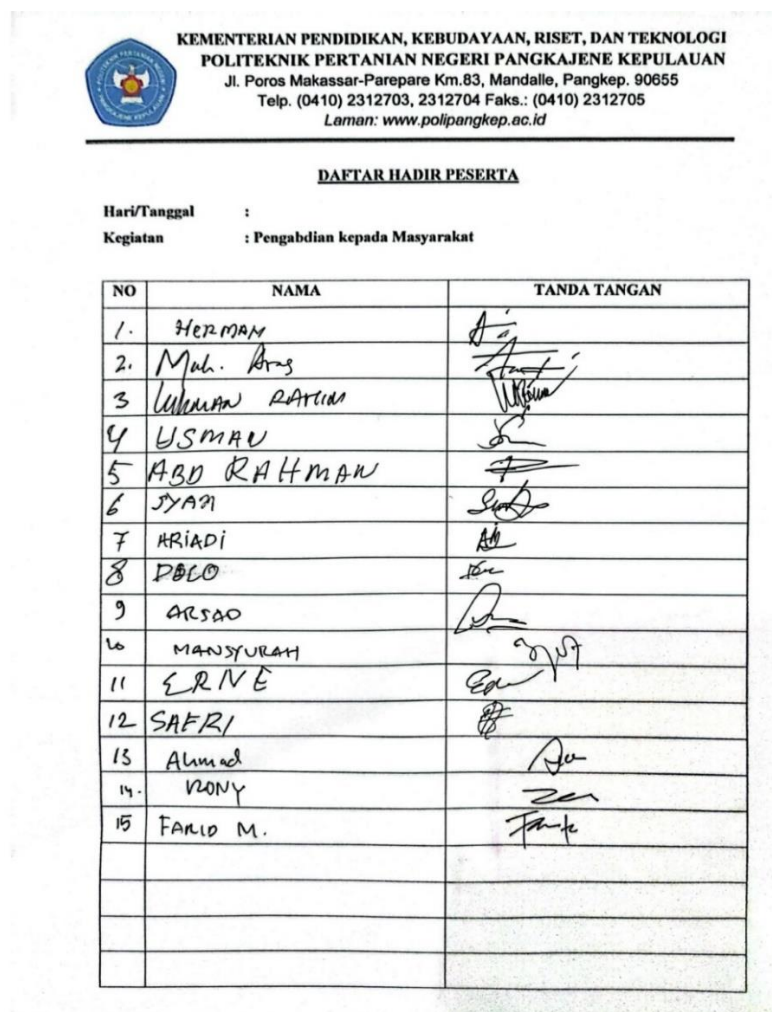 KEMENTERIAN PENDIDIKAN, KEBUDAYAAN, RISET, DAN TEKNOLOGI
POLITEKNIK PERTANIAN NEGERI PANGKAJENE KEPULAUAN
Jl. Poros Makassar-Parepare Km.83, Mandalle, Pangkep. 90655
Telp. (0410) 2312703, 2312704 Faks.: (0410) 2312705
Laman: www.polipangkep.ac.id
DAFTAR HADIR PESERTA
Hari/Tanggal :
Kegiatan : Pengabdian kepada Masyarakat
NO NAMA TANDA TANGAN
1. HERMAN
2. Muh. Aras
3 LUKMAN RAHIM
4 USMAN
5 ABD RAHMAN
6
7 ARIADI
8
9 ARSAD
10 MANSYURAH
11 ERNE
12 SAFRI
13 Ahmad
14. RONY
15 FARID M.